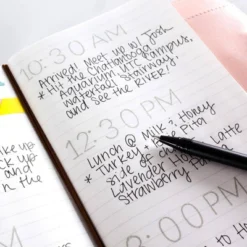 ake up
ck up
and
n the
10:30 AM
Arrived! Meet up w/ Josh
* Hit the Chattanooga
Aquarium, UTC campus,
waterfall, stairways,
and see the RIVER!
12:30 PM
Lunch @ Milk & Honey
* Turkey Pita
side of
Lavender Honey Latte
Strawberry
3:00 PM